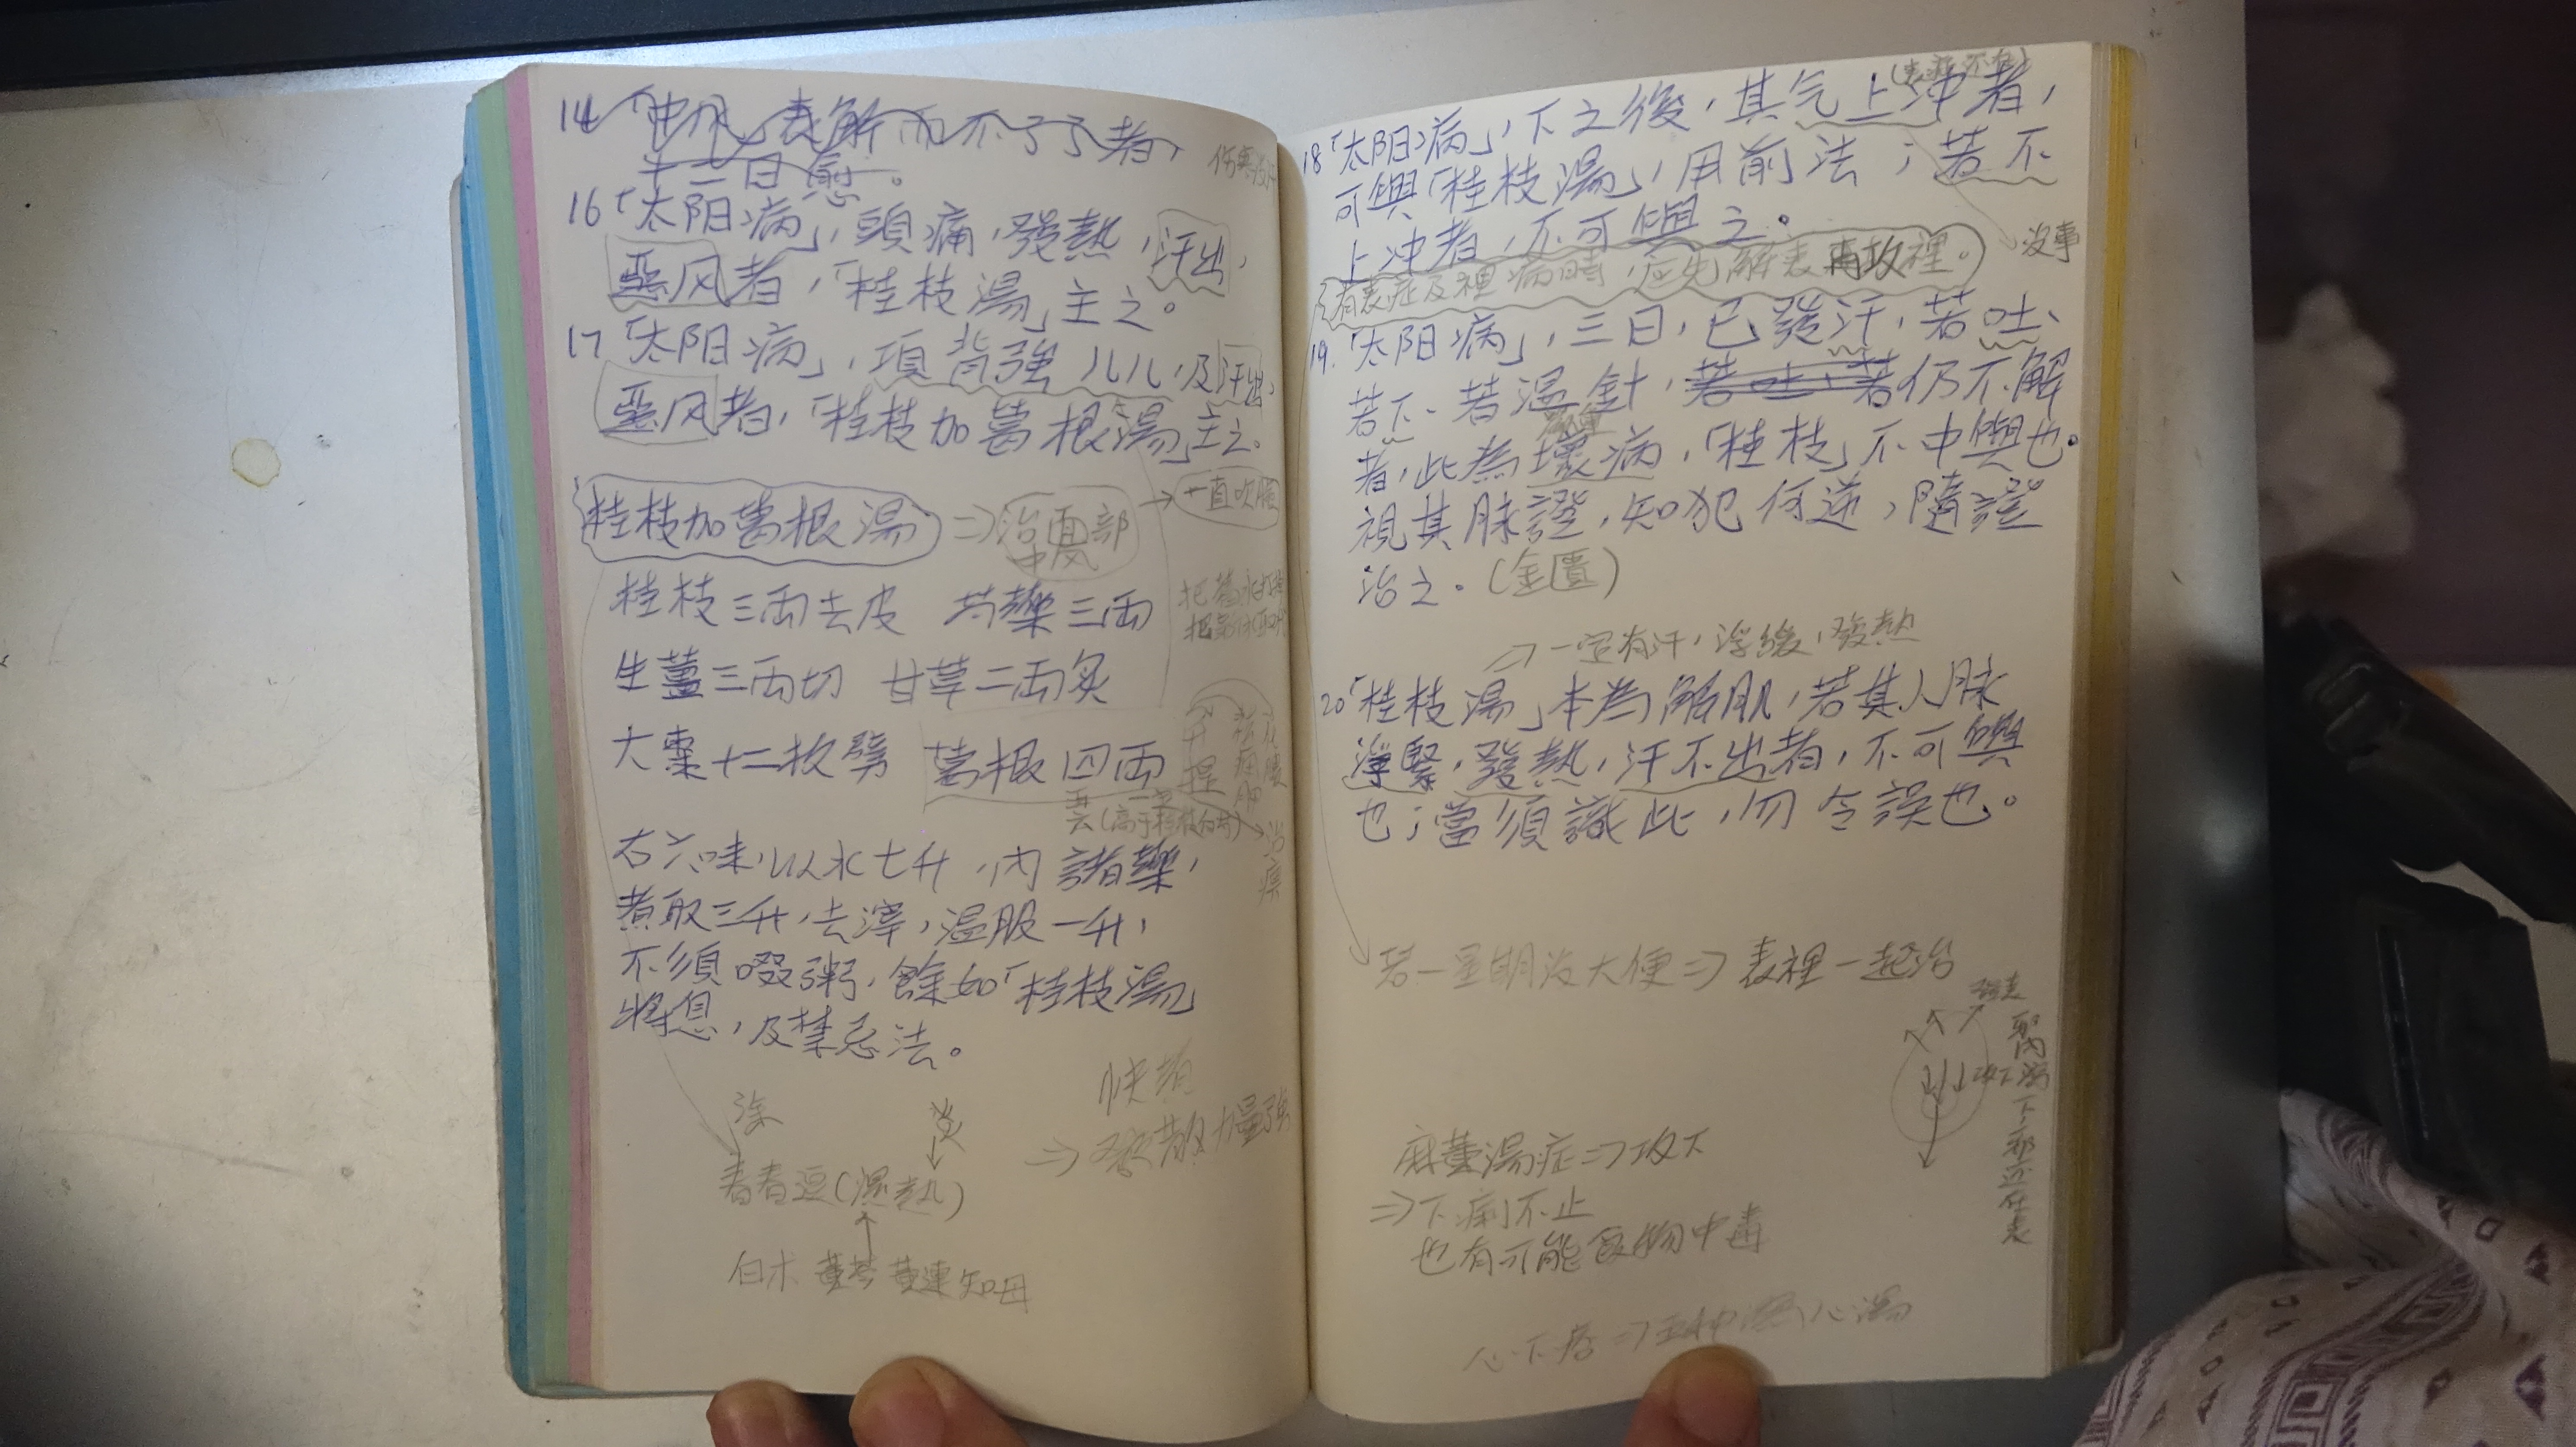 14「中风」表解而不了了者，
十二日愈。
16「太阳病」，頭痛，發熱，汗出，
惡风者，「桂枝湯」主之。
17「太阳病」，項背強儿儿，及汗出，
惡风者，「桂枝加葛根湯」主之。
桂枝加葛根湯 ⇒ 治面部
中风
→ 一直吹腦
桂枝三兩去皮 芍藥三兩
生薑三兩切 甘草二兩炙
大棗十二枚擘 葛根四兩
升提
治痙
右六味，以水七升，內諸藥，
煮取三升，去滓，溫服一升，
不須啜粥，餘如「桂枝湯」
將息，及禁忌法。
快煮
⇒ 發散力量強
青春逗(濕熱)
白朮 黃芩 黃連 知母
18「太阳病」，下之後，其气上冲者，
可與「桂枝湯」，用前法；若不
上冲者，不可與之。
→ 沒事
有表症及裡病時，应先解表再攻裡。
19.「太阳病」，三日，已發汗，若吐、
若下、若溫針，若吐、若仍不解
者，此為壞病，「桂枝」不中與也。
視其脉證，知犯何逆，隨證
治之。(金匱)
⇒ 一定有汗，浮緩，發熱
20「桂枝湯」本為解肌，若其人脉
浮緊，發熱，汗不出者，不可與
也；當須識此，勿令誤也。
若一星期沒大便 ⇒ 表裡一起治
麻黃湯症 ⇒ 攻下
⇒ 下痢不止
也有可能食物中毒
心下痞 ⇒ 五种瀉心湯